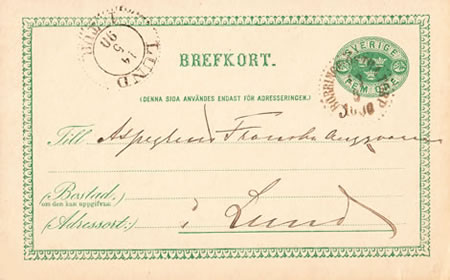 LUND
14
5
90
BREFKORT.
SVERIGE
FEM ÖRE
(DENNA SIDA ANVÄNDES ENDAST FÖR ADRESSERINGEN.)
Till Franska
(Bostad:
om den kan uppgifvas)
(Adressort:) i Lund